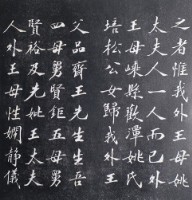 之者惟我外王母姚
太夫人一人而已外
王母嵊縣歡潭姚氏
培松公女歸我外王
父品齋王先生生吾
四母舅賢鉅五母舅
賢裕及先妣王太夫
人外王母性嫻靜儀